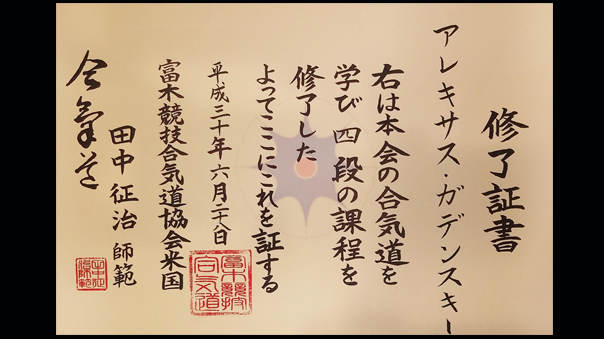 修了証書
アレキサス・ガデンスキー
右は本会の合気道を
学び四段の課程を
修了した
よってここにこれを証する
平成三十年六月二十八日
富木競技合気道協会米国
富木競技
合気道
田中征治 師範
合氣道